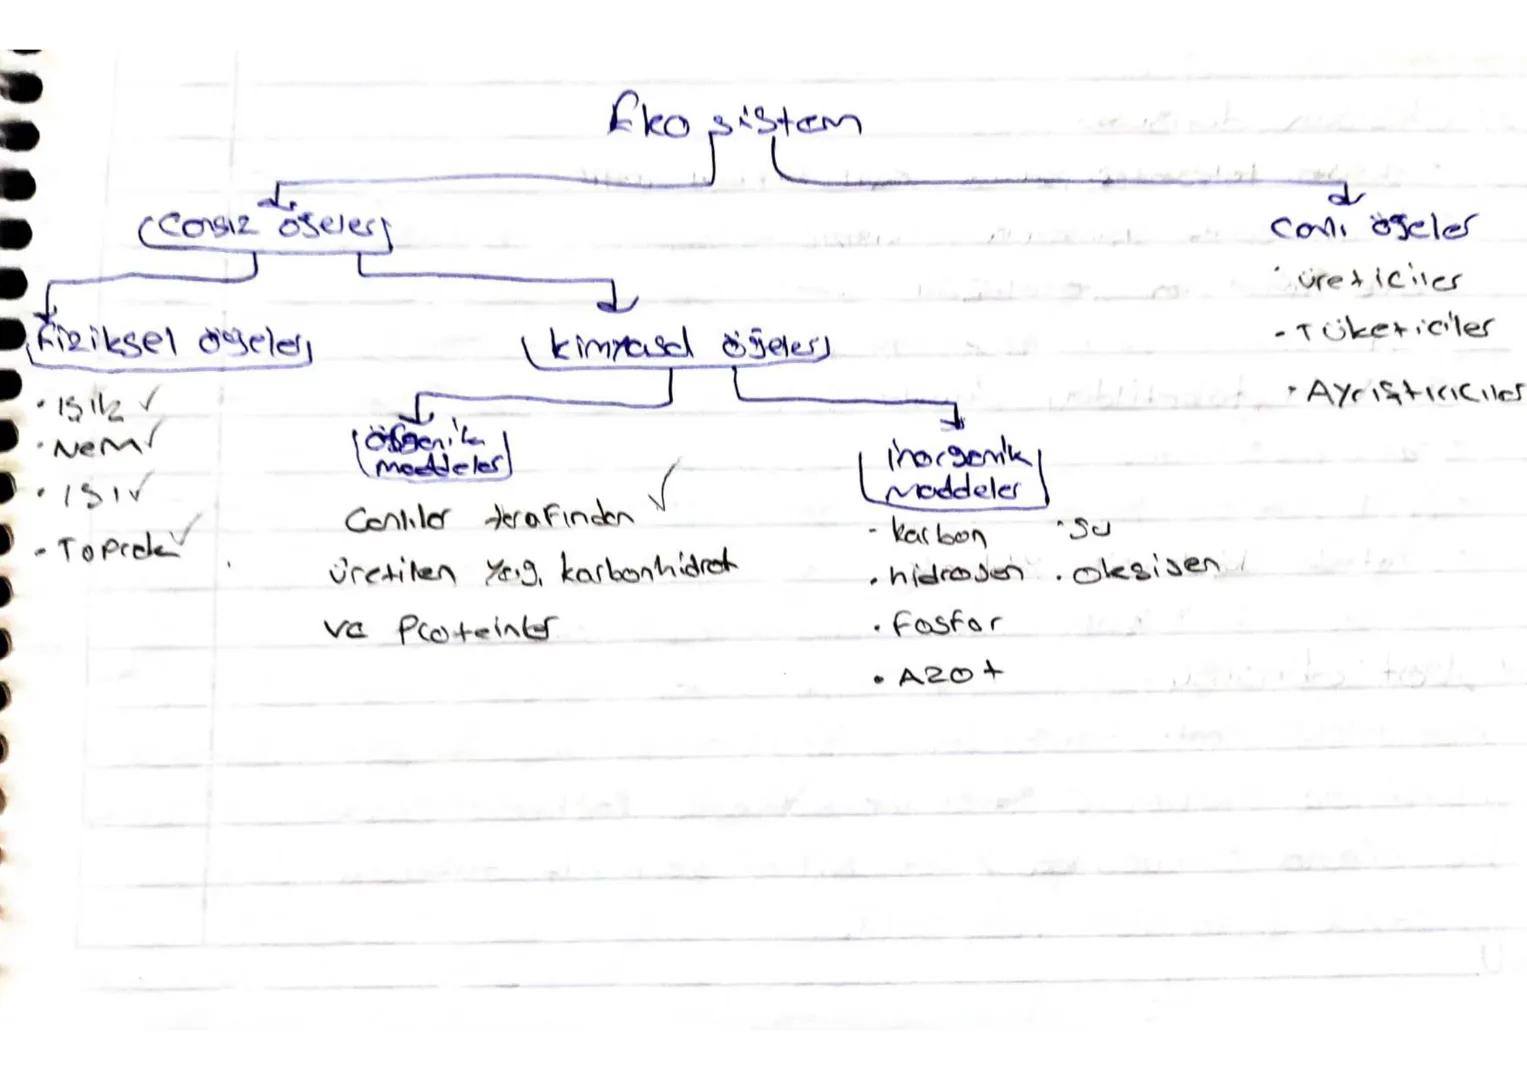 Eko sistem
Cansız öğeler
Canlı öğeler
· üreticiler
- Tüketiciler
· Ayrıştırıcılar
fiziksel öğeler
· Işık ✓
· Nem ✓
· ISI ✓
- Toprak ✓
kimyasal öğeler
organik
maddeler
Canlılar tarafından ✓
üretilen yağ, karbonhidrat
ve Proteinler
inorganik
maddeler
- karbon · su
· hidrojen · oksijen
· fosfor
· Azot